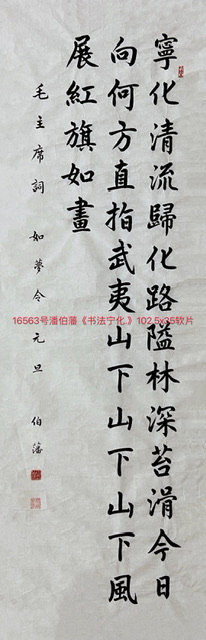 寧化清流歸化路隘林深苔滑今日
向何方直指武夷山下山下山下風
展紅旗如畫
毛主席詞 如夢令元旦 伯藩
16563号潘伯藩《书法宁化.》102.5x35软片